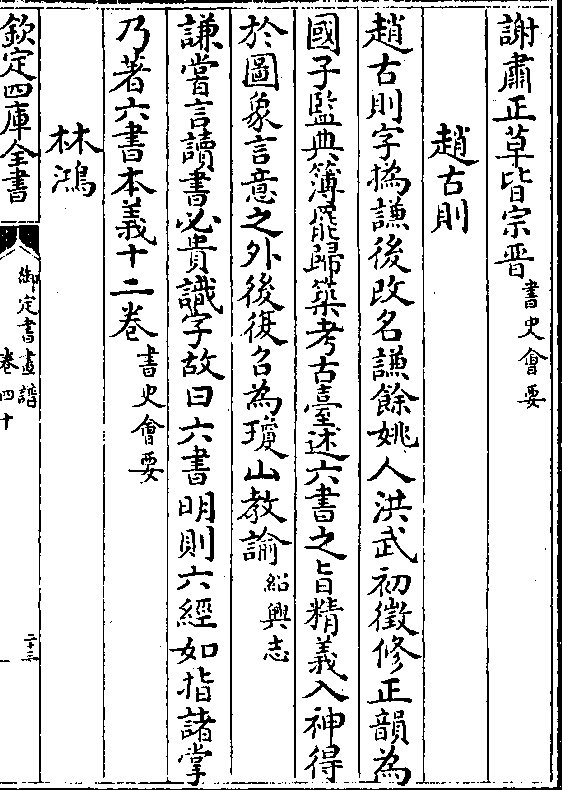 謝肅正草皆宗晉書史會要
趙古則
趙古則字撝謙後改名謙餘姚人洪武初徵修正韻為
國子監典簿罷歸築考古臺述六書之旨精義入神得
於圖象言意之外後復召為瓊山教諭紹興志
謙嘗言讀書必貴識字故曰六書明則六經如指諸掌
乃著六書本義十二卷書史會要
林鴻
欽定四庫全書
御定書畫譜
卷四十
二十三